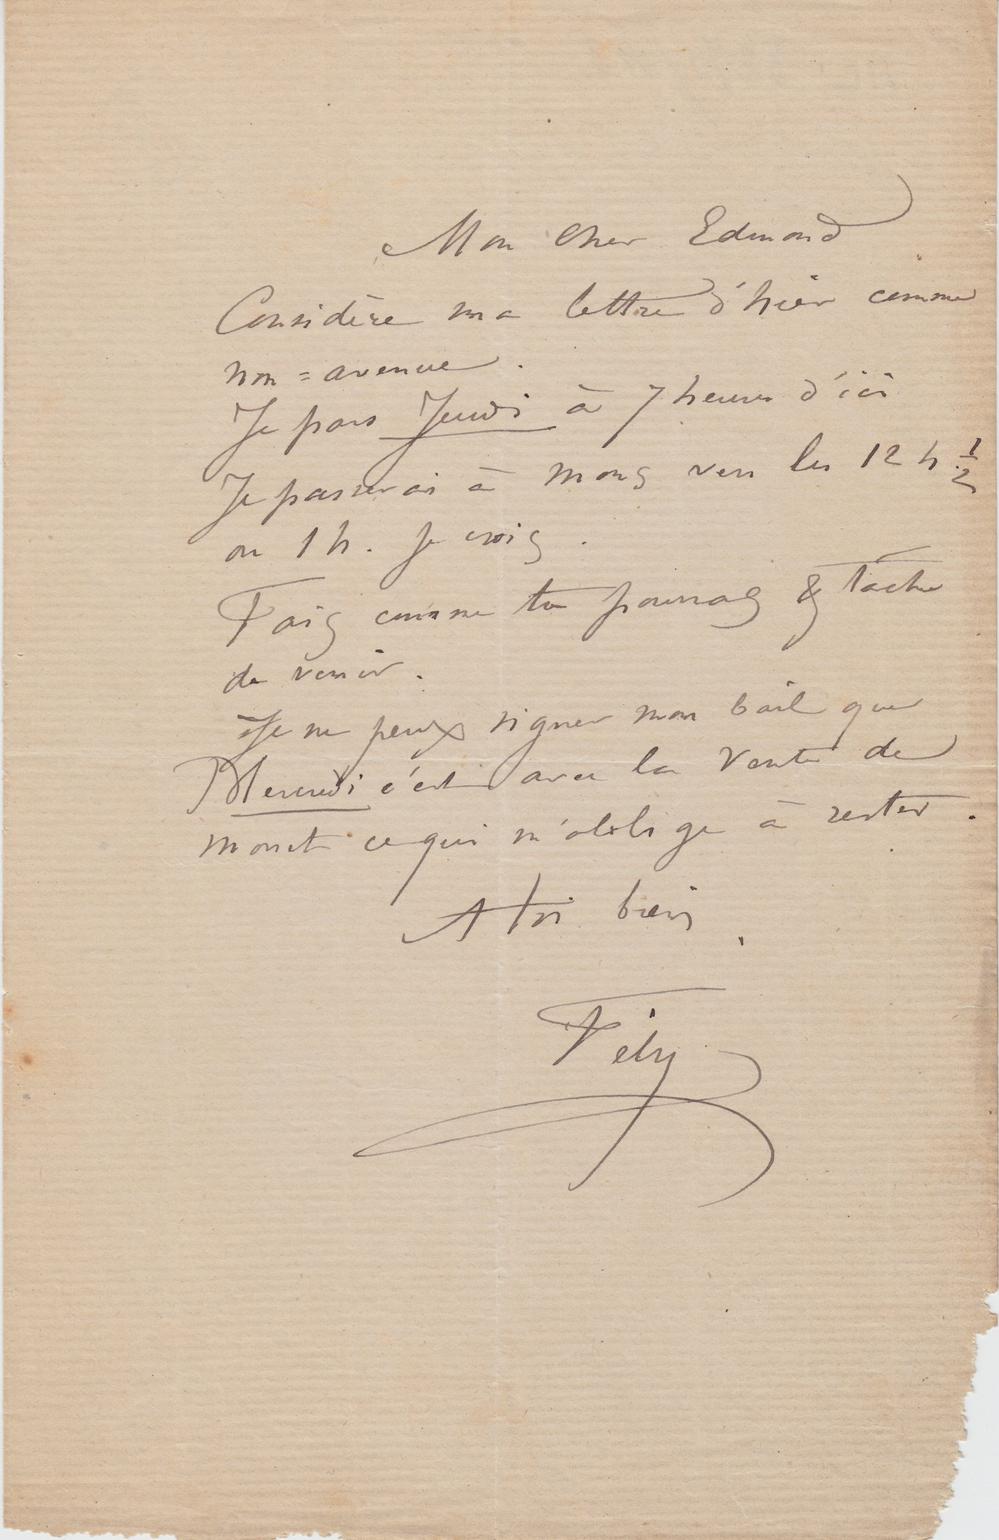 Mon Cher Edmond
Considère ma lettre d'hier comme
non = avenue.
Je pars Jeudi à 7 heures d'ici
Je passerai à Mons vers les 12 h. 1/2
ou 1 h. Je crois.
Fais comme tu pourras & tache
de venir.
Je ne peux signer mon bail que
Mercredi c'est avec la Vente de
ce qui m'oblige à rester.
A toi bien,
Fély